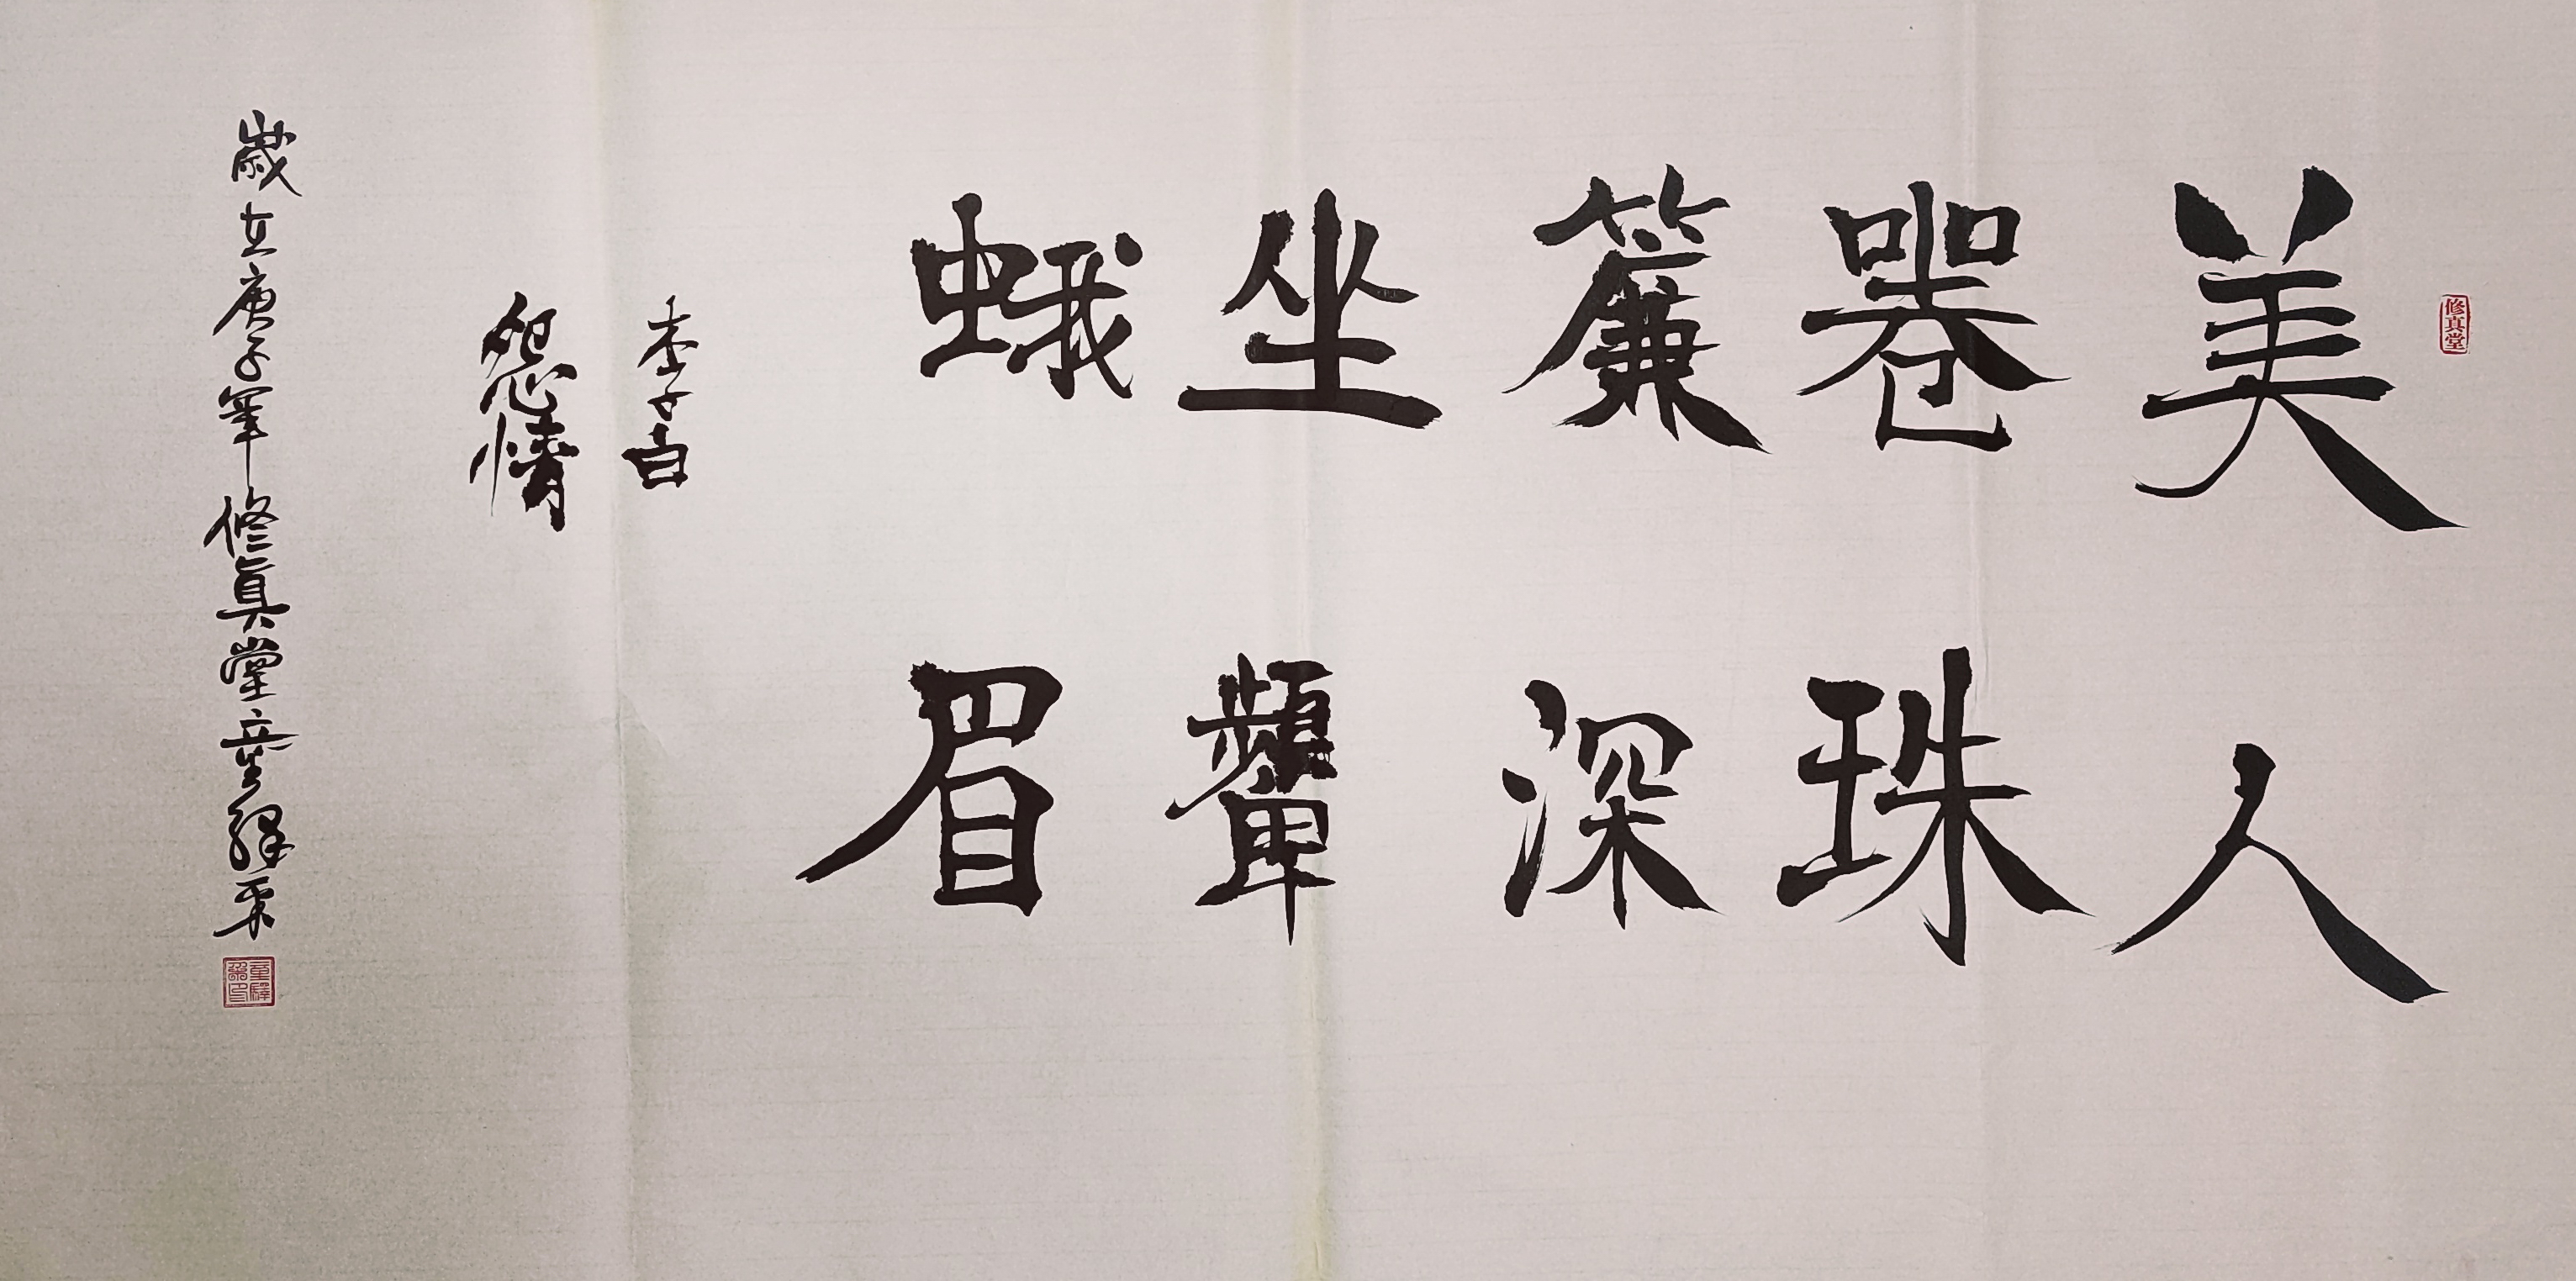 修真堂
美人
卷珠
簾深
坐顰
蛾眉
李白
怨情
歲在庚子 修真堂童驛